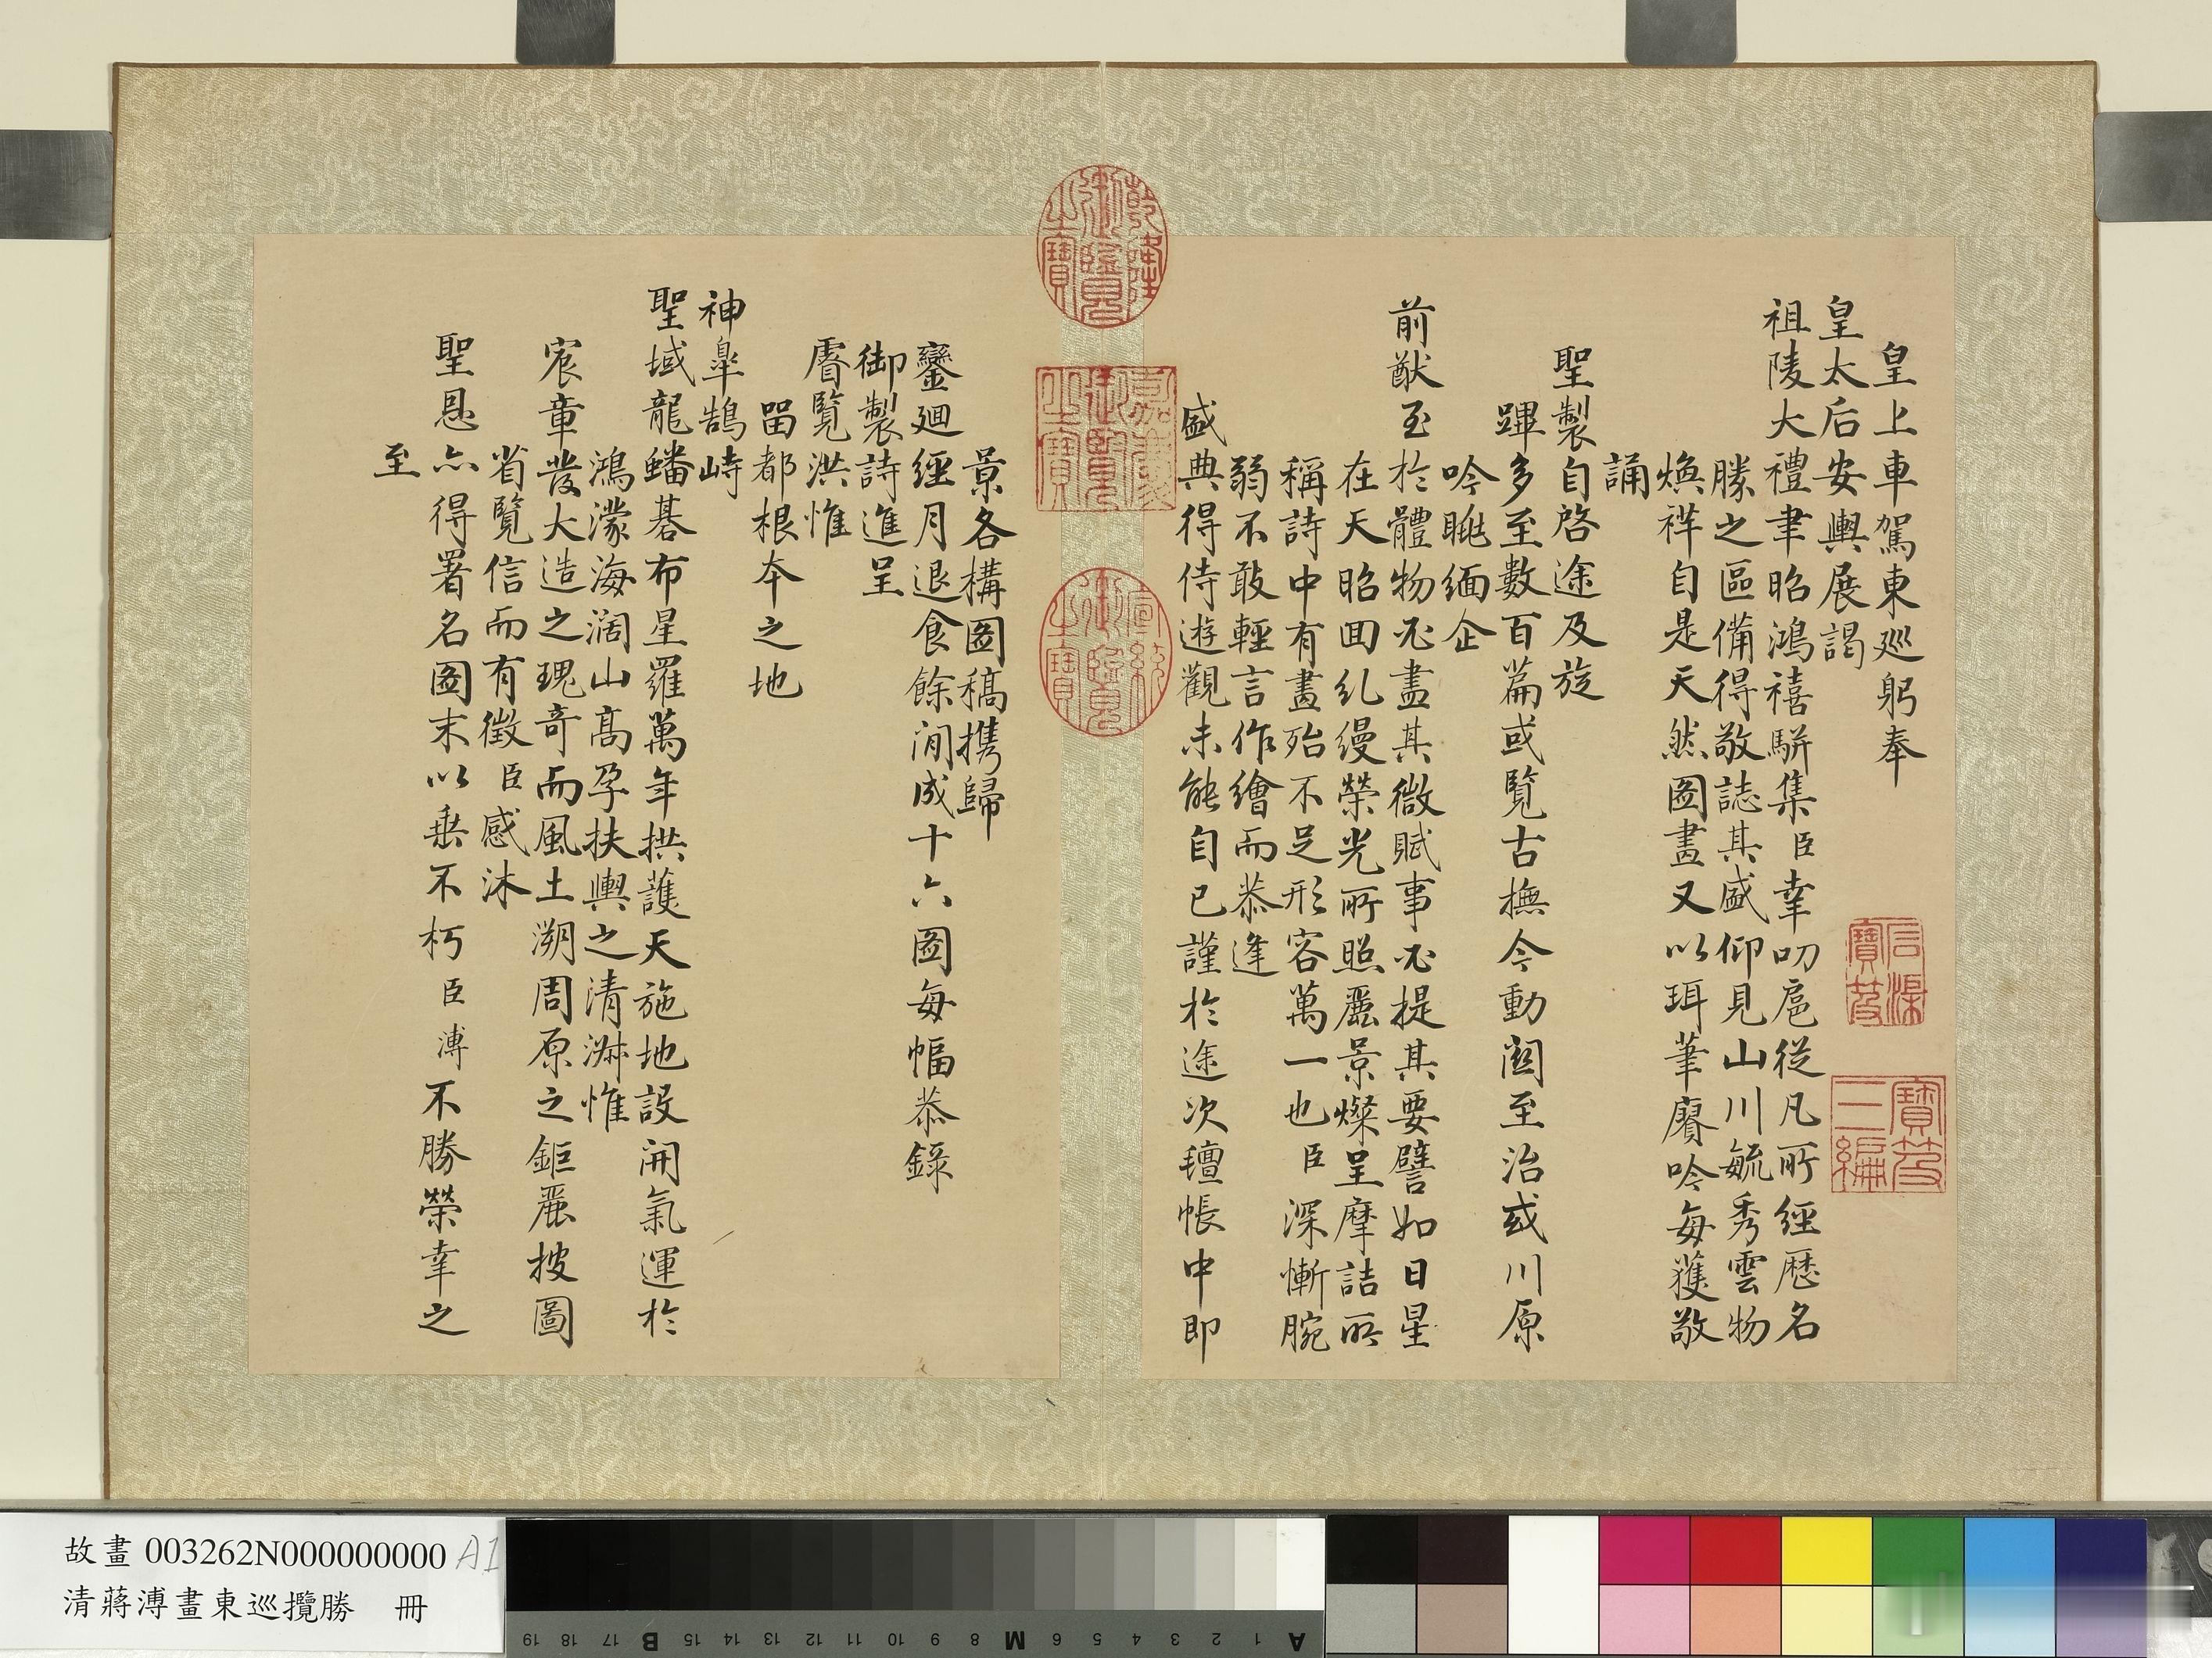 皇上車駕東巡躬奉
皇太后安輿展謁
祖陵大禮聿昭鴻禧駢集臣幸叨扈從凡所經歷名
勝之區備得敬誌其盛仰見山川毓秀雲物
煥祥自是天然圖畫又以珥筆賡吟每獲敬
誦
聖製自啓途及旋
蹕多至數百篇或覽古撫今動闗至治或川原
吟眺緬企
前猷至於體物必盡其微賦事必提其要譬如日星
在天昭囬糺縵榮光所照麗景燦呈摩詰所
稱詩中有畫殆不足形容萬一也臣深慚腕
弱不敢輕言作繪而恭逢
盛典得侍遊觀未能自已謹於途次氊帳中即
景各構圖稿携歸
鑾廻經月退食餘閒成十六圖每幅恭錄
御製詩進呈
睿覽洪惟
留都根本之地
神臯鵠峙
聖域龍蟠碁布星羅萬年拱護天施地設開氣運於
鴻濛海濶山高孕扶輿之清淑惟
宸章發大造之瑰奇而風土溯周原之鉅麗披圖
省覽信而有徵臣感沐
聖恩亦得署名圖末以垂不朽臣溥不勝榮幸之
至
乾隆御覽之寶
嘉慶御覽之寶
宣統御覽之寶
石渠寶笈
寶笈三編
故畫 003262N000000000 A1
清蔣溥畫東巡攬勝 冊
A 1 2 3 4 5 6 M 8 9 10 11 12 13 14 15 B 17 18 19